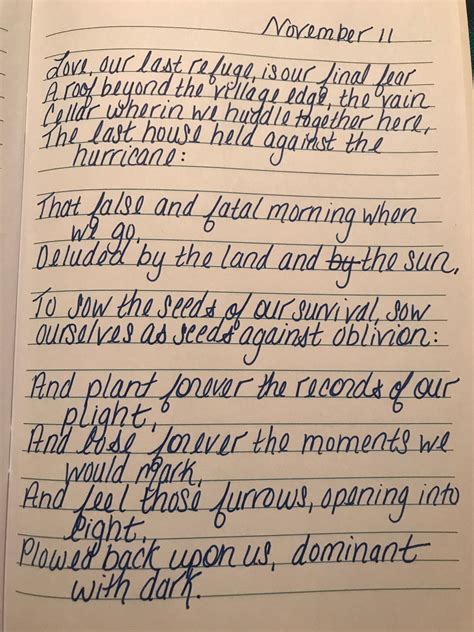 November 11
Love, our last refuge, is our final fear
A roof beyond the village edge, the vain
Cellar wherin we huddle together here,
The last house held against the
hurricane:
That false and fatal morning when
we go,
Deluded by the land and by the sun,
To sow the seeds of our survival, sow
ourselves as seeds against oblivion:
And plant forever the records of our
plight,
And lose forever the moments we
would mark,
And feel those furrows, opening into
light,
Plowed back upon us, dominant
with dark.